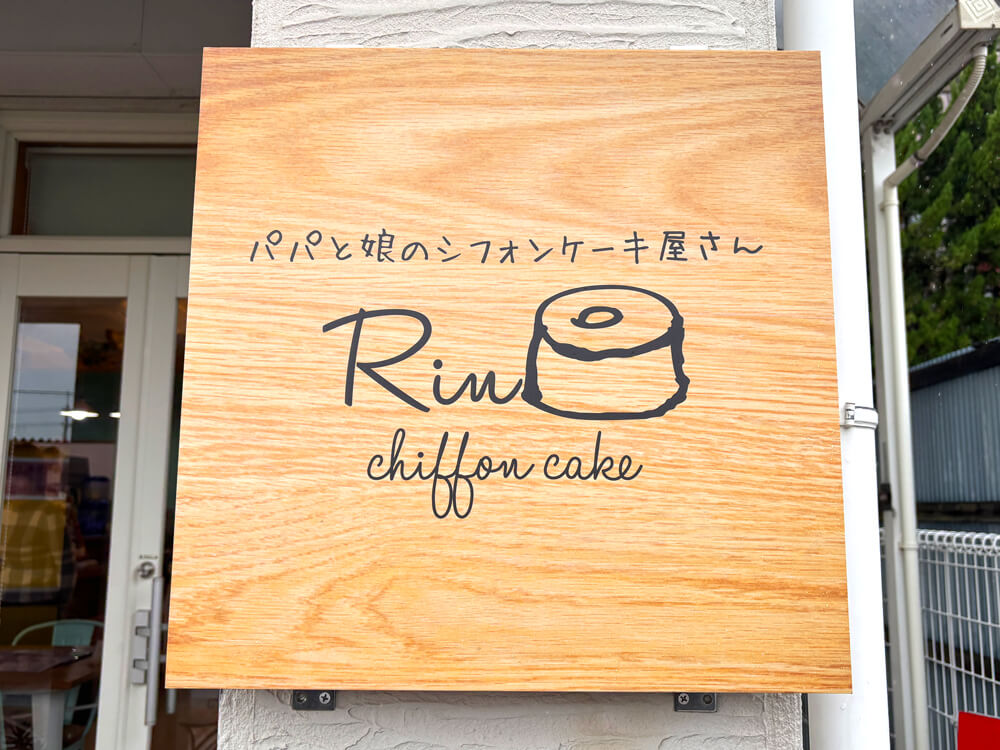 パパと娘のシフォンケーキ屋さん
Rin
chiffon cake